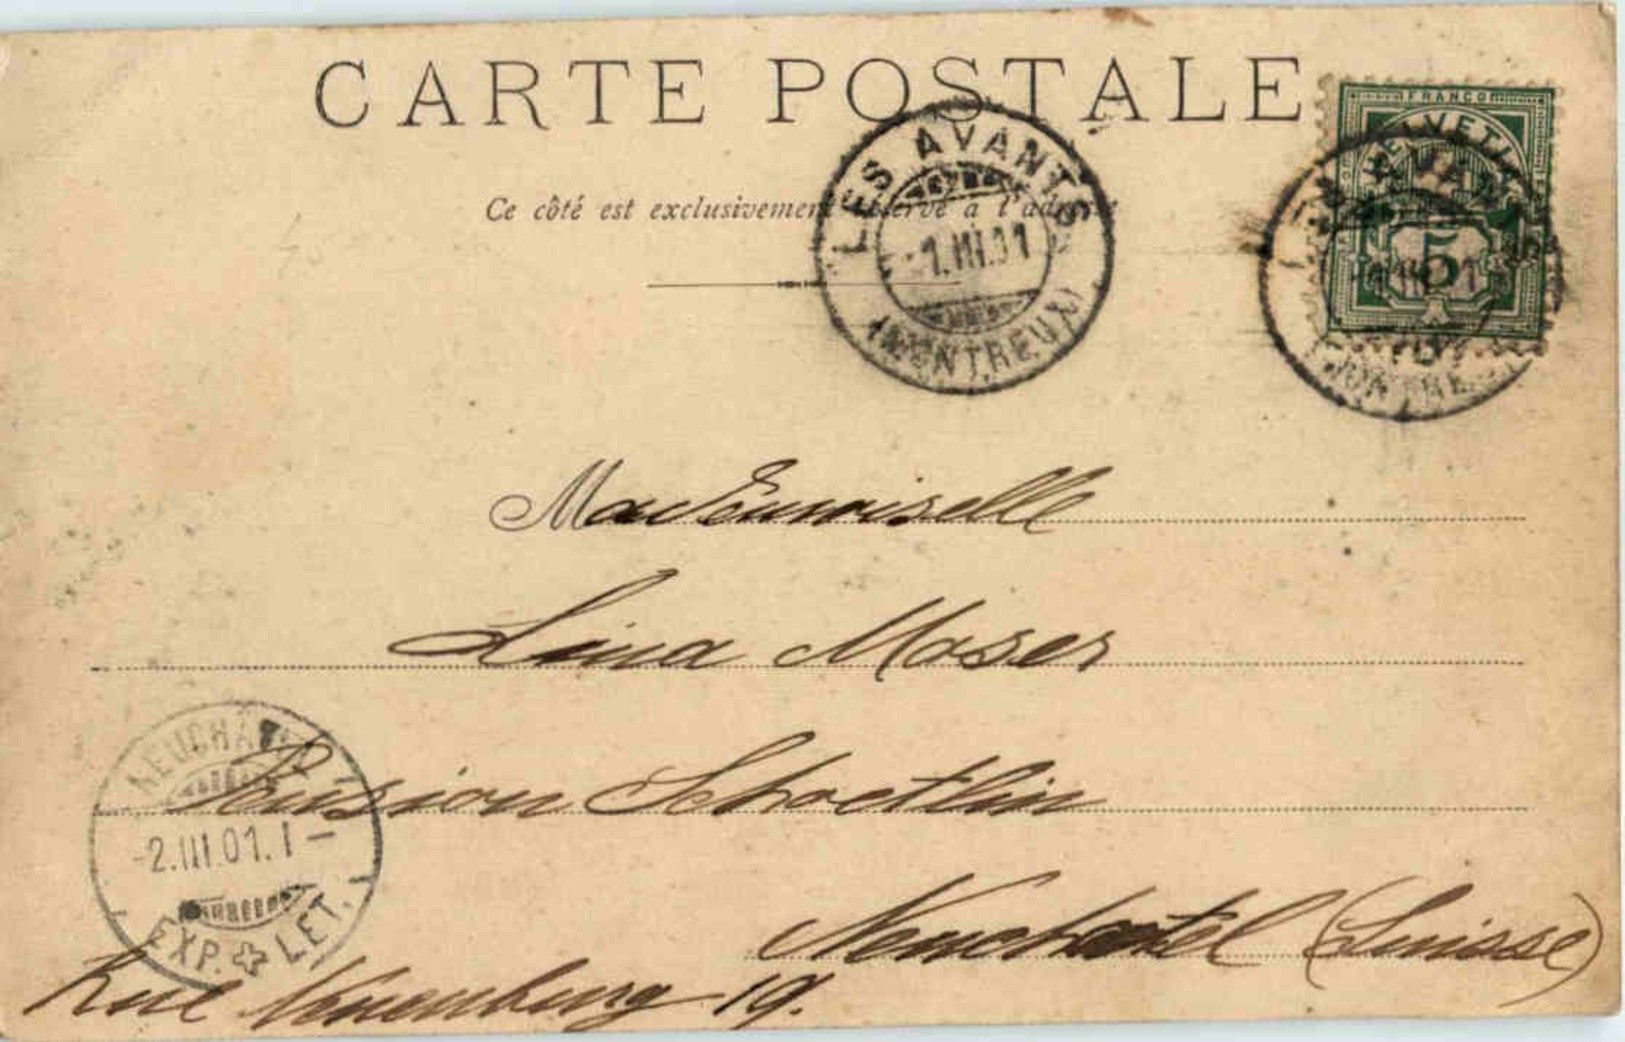 CARTE POSTALE
Ce côté est exclusivement réservé à l'adresse
LES AVANTS
-1.III.01
(MONTREUX)
FRANCO
HELVETIA
5
Mademoiselle
Lina Moser
Pension Schoetlin
Neuchatel (Suisse)
Rue 19.
NEUCHÂTEL
-2.III.01.I-
EXP. LET.